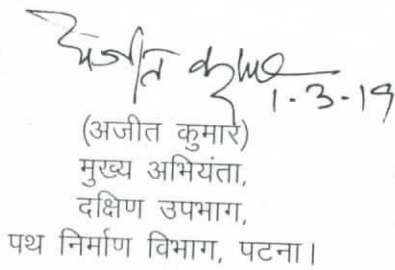 अजीत कुमार
1.3.19
(अजीत कुमार)
मुख्य अभियंता,
दक्षिण उपभाग,
पथ निर्माण विभाग, पटना।